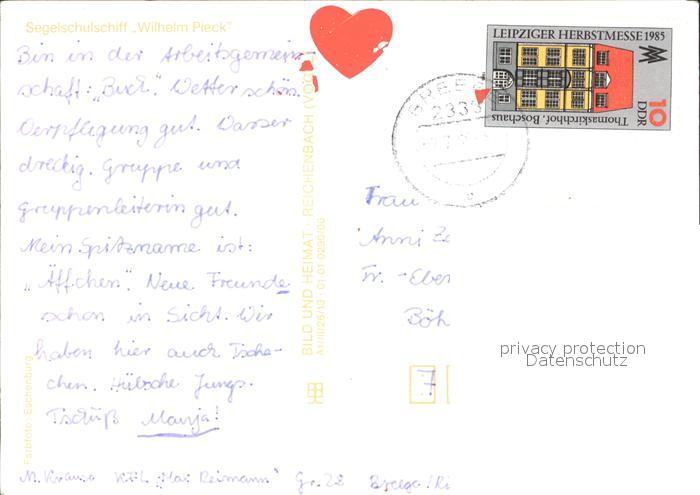 Segelschulschiff „Wilhelm Pieck"
Bin in der Arbeitsgemein-
schaft: „Buch". Wetter schön.
Verpflegung gut. Wasser
dreckig. Gruppe und
Gruppenleiterin gut.
Mein Spitzname ist:
„Äffchen". Neue Freunde
schon in Sicht. Wir
haben hier auch Tsche-
chen. Hübsche Jungs.
Tschüß Manja!
M. Krause "Max Reimann" Gr. 28 Breege/Rü
Farbfoto: Eschenburg
BILD UND HEIMAT · REICHENBACH (VOGTL)
A1/III/26/13 · 01 01 0230/00
LEIPZIGER HERBSTMESSE 1985
Thomaskirchhof, Bosehaus
DDR
10
BREEGE
Frau
Anni
Fr. -Eber
Böh
7
privacy protection
Datenschutz